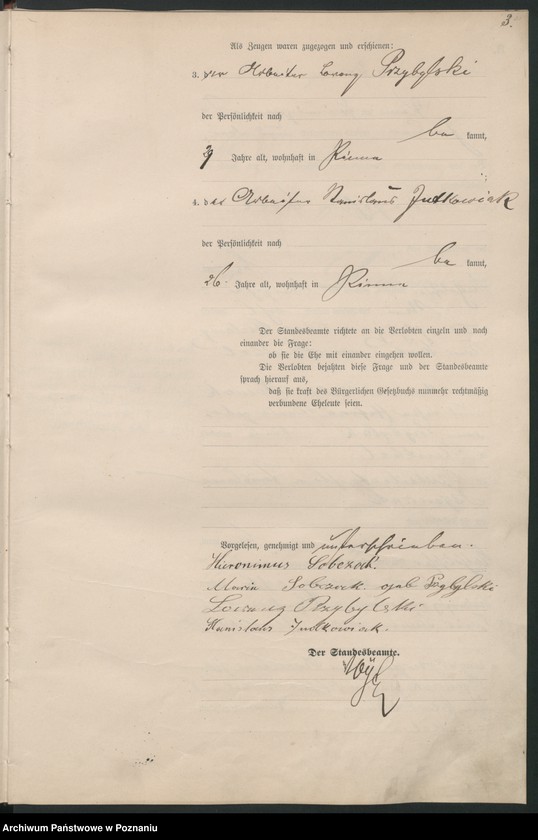 3.
Als Zeugen waren zugezogen und erschienen:
3. der Arbeiter Lorenz Przybylski
der Persönlichkeit nach
be kannt,
Jahre alt, wohnhaft in
4. der Arbeiter Stanislaus Jutkowiak
der Persönlichkeit nach
be kannt,
26 Jahre alt, wohnhaft in
Der Standesbeamte richtete an die Verlobten einzeln und nach
einander die Frage:
ob sie die Ehe mit einander eingehen wollen.
Die Verlobten bejahten diese Frage und der Standesbeamte
sprach hierauf aus,
daß sie kraft des Bürgerlichen Gesetzbuchs nunmehr rechtmäßig
verbundene Eheleute seien.
Vorgelesen, genehmigt und unterschrieben.
Hieronimus Sobczak.
Maria Sobczak geb Przybylski
Lorenz Przybylski
Stanislaus Jutkowiak.
Der Standesbeamte.
Archiwum Państwowe w Poznaniu